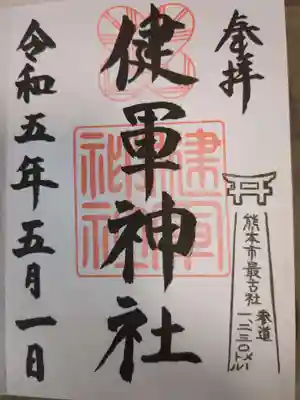 奉拝
健軍神社
令和五年五月一日
熊本市最古社
参道
一、二三〇メートル
健軍神社